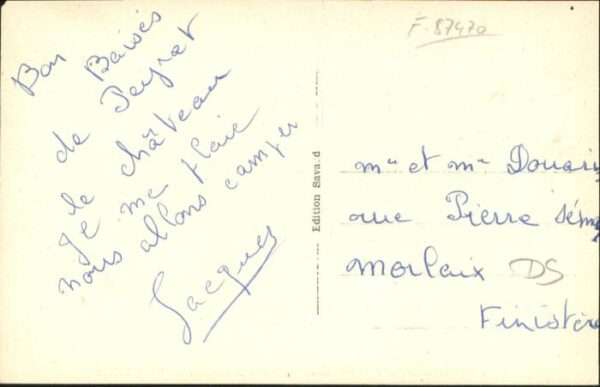 Bon Baisés
de Peyrat
le château
Je me plaie
nous allons camper
Jacques
Edition Savard
F. 87470
mr et me Douari
rue Pierre Sém
Morlaix DS
Finistère